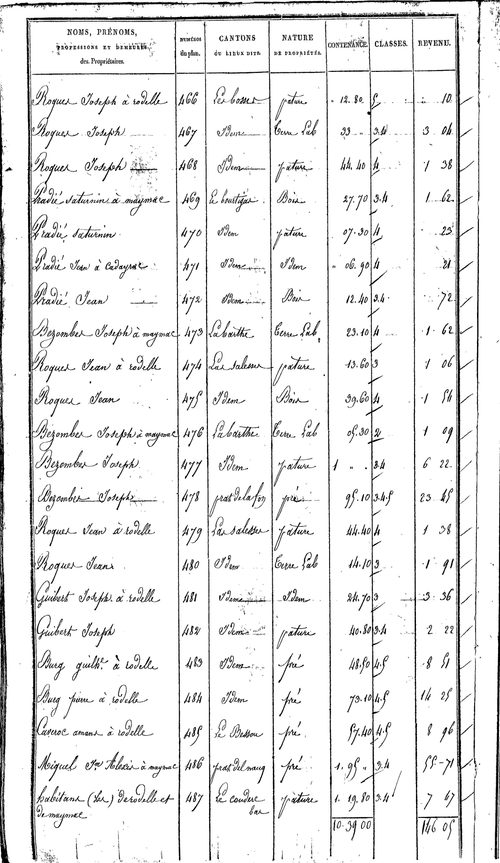 NOMS, PRÉNOMS, PROFESSIONS ET DEMEURES des Propriétaires. NUMÉROS du plan. CANTONS OU LIEUX DITS. NATURE DE PROPRIÉTÉS. CONTENANCE. CLASSES. REVENU.
Roques Joseph à rodelle 466 pature 12.80 5 10
Roques Joseph 467 Idem Terre Lab 33 3.4 3 04
Roques Joseph 468 Idem pature 44.40 4 1 38
Pradié Saturnin à maymac 469 Bois 27.70 3.4 1 62
Pradié Saturnin 470 Idem pature 07.30 4 23
Pradié Jean à Cadayrac 471 Idem Idem 06.90 4 21
Pradié Jean 472 Idem Bois 12.40 3.4 72
Bezombes Joseph à maymac 473 Labarthe Terre Lab 23.10 4 1 62
Roques Jean à rodelle 474 Las salesses pature 13.60 3 1 06
Roques Jean 475 Idem Bois 39.60 4 1 54
Bezombes Joseph à maymac 476 Labarthe Terre Lab 05.30 2 1 09
Bezombes Joseph 477 Idem pature 1 " " 3.4 6 22
Bezombes Joseph 478 prat de la fon pré 95.10 3.4.5 23 45
Roques Jean à rodelle 479 Las salesses pature 44.40 4 1 38
Roques Jean 480 Idem Terre Lab 14.10 3 1 91
Guibert Joseph à rodelle 481 Idem Idem 24.70 3 3 36
Guibert Joseph 482 Idem pature 40.80 3.4 2 22
Burg guilhe. à rodelle 483 Idem pré 48.50 4.5 8 51
Burg pierre à rodelle 484 Idem pré 73.10 4.5 14 25
amans à rodelle 485 Le Bessou pré 57.40 4.5 8 96
Miquel Alexis à maymac 486 pré 1. 95 " 3.4 55 71
habitans (Les) de rodelle et 487 Le couderc pature 1. 19.80 3.4 7 67
de maymac bas
10.39.00 146 05